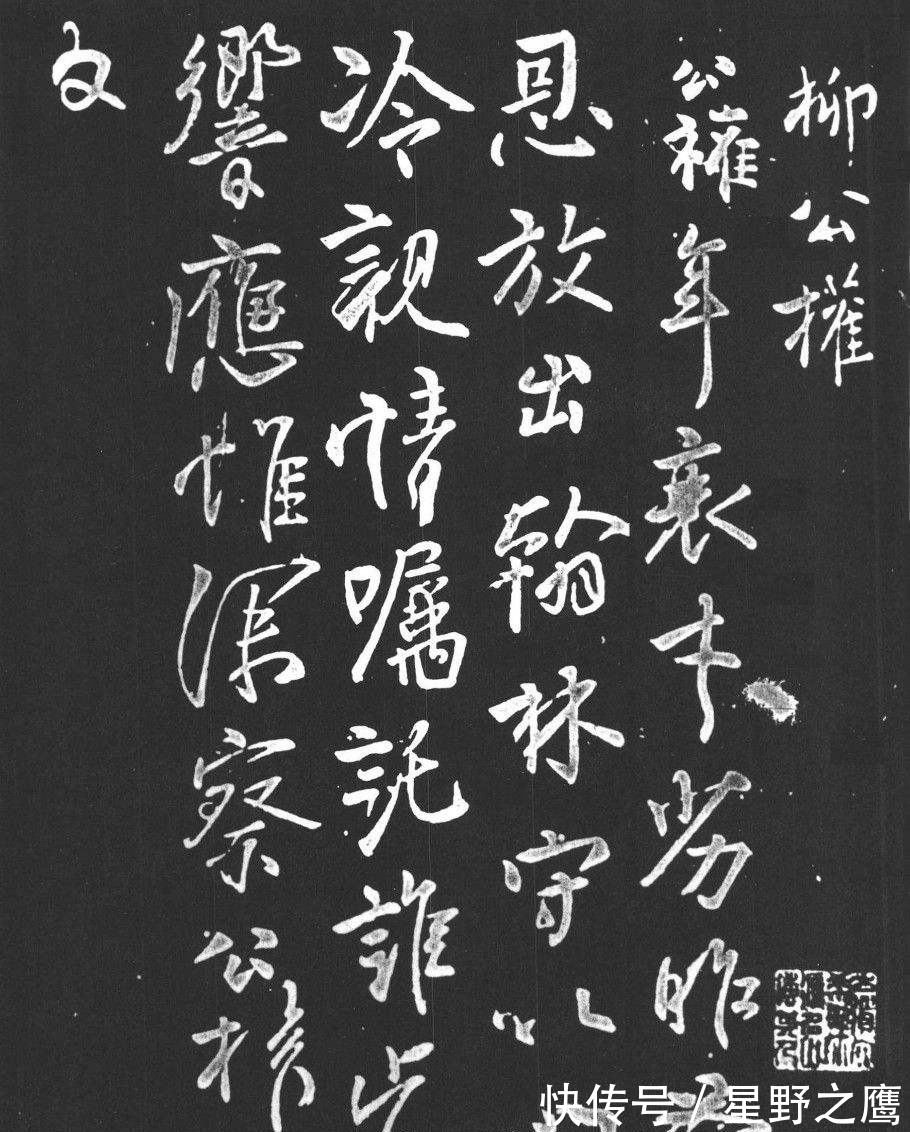 柳公權
公權年衰才劣昨
恩放出翰林守以
冷親情囑託誰
響應惟深察公權
快传号 / 星野之鹰